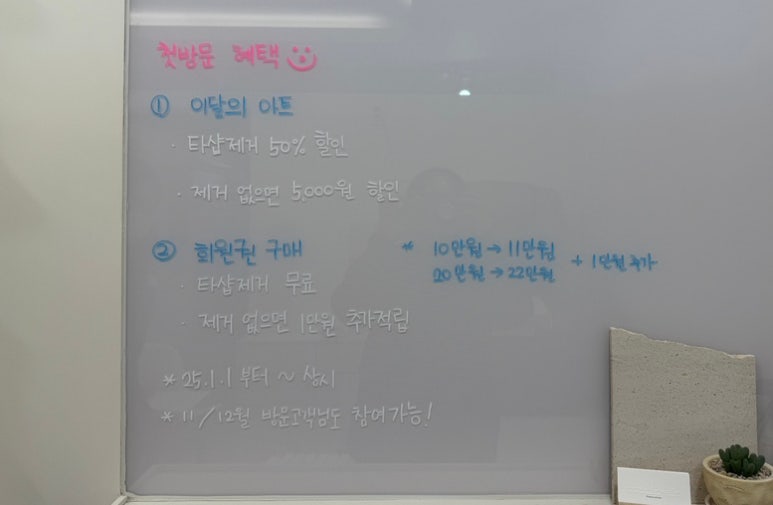 첫방문 혜택
① 이달의 아트
· 타샵제거 50% 할인
· 제거 없으면 5,000원 할인
② 회원권 구매
* 10만원 → 11만원
20만원 → 22만원
+ 1만원 추가
· 타샵제거 무료
· 제거 없으면 1만원 추가적립
* 25.1.1 부터 ~ 상시
* 11/12월 방문고객님도 참여가능!